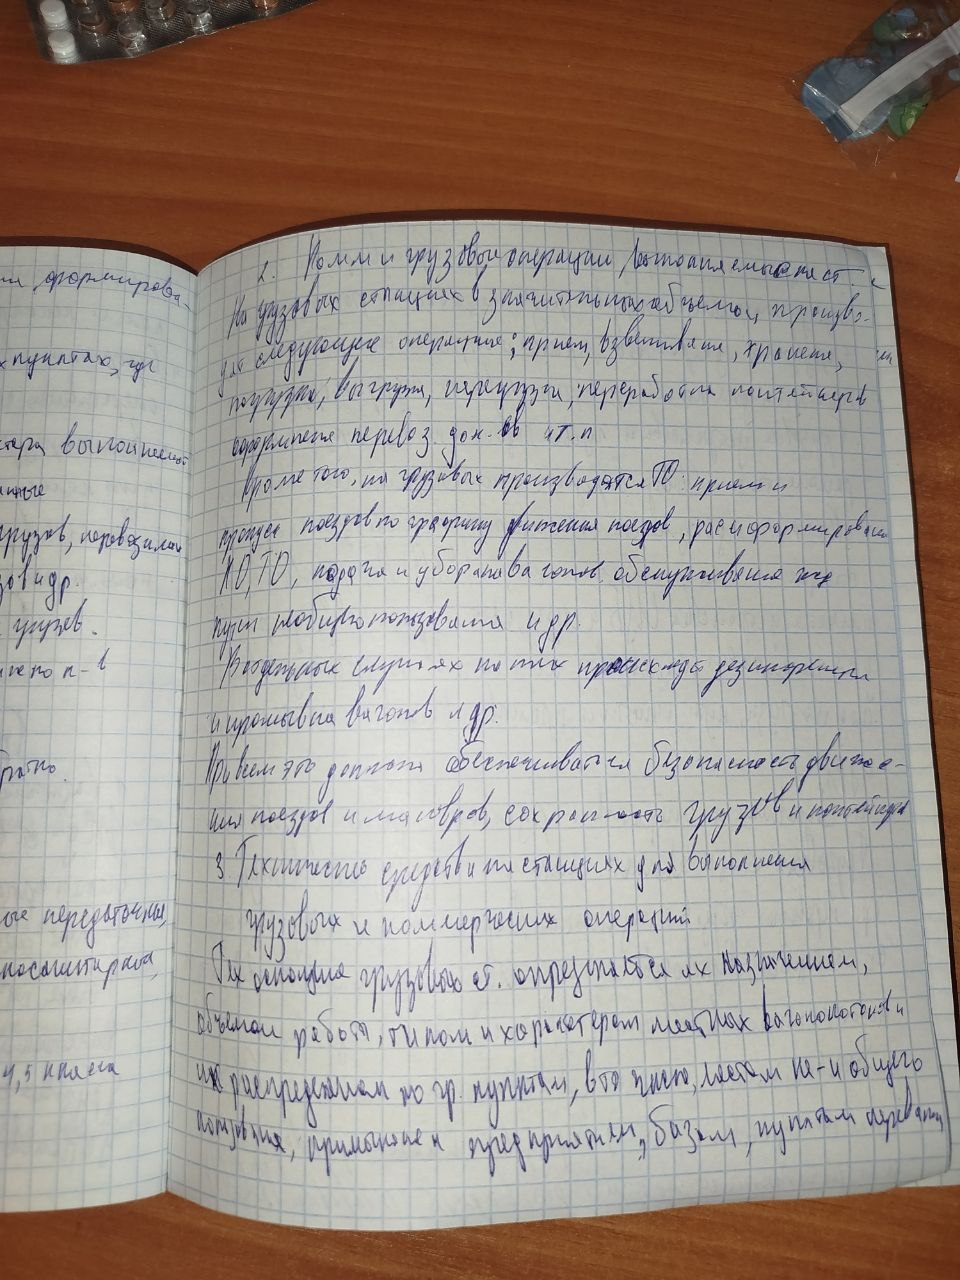 ии формирова-
х пунктах, где
ктера выполняемой
грузов, перевозимых
зов и др.
грузов.
обратно.
ые передаточные,
пассажирские,
4, 5 класса
2. Комм и грузовые операции, выполняемые на ст.
На грузовых станциях в значительных объемах, произво-
дят следующие операции; прием, взвешивание, хранение,
погрузка, выгрузка, перегрузка, переработка контейнеров
оформление перевоз. док-ов и т.п
Кроме того, на грузовых производятся ТО: прием и
пропуск поездов по графику движения поездов, расформирование
КО, ТО, подача и уборка вагонов, обслуживание жд
пути необщего пользования и др.
В отдельных случаях на них происходит дезинфекция
и промывка вагонов и др.
При всем это должна обеспечиваться безопасность движе-
ния поездов и маневров, сохранность грузов и контейнеров
3. Технические средства на станциях для выполнения
грузовых и коммерческих операций
Тех оснащение грузовых ст. определяется их назначением,
объемом работы, типом и характером местных вагонопотоков и
их распределением по гр. пунктам, в то число, местам не-и общего
пользования, предприятием, базам, пунктам перевалки